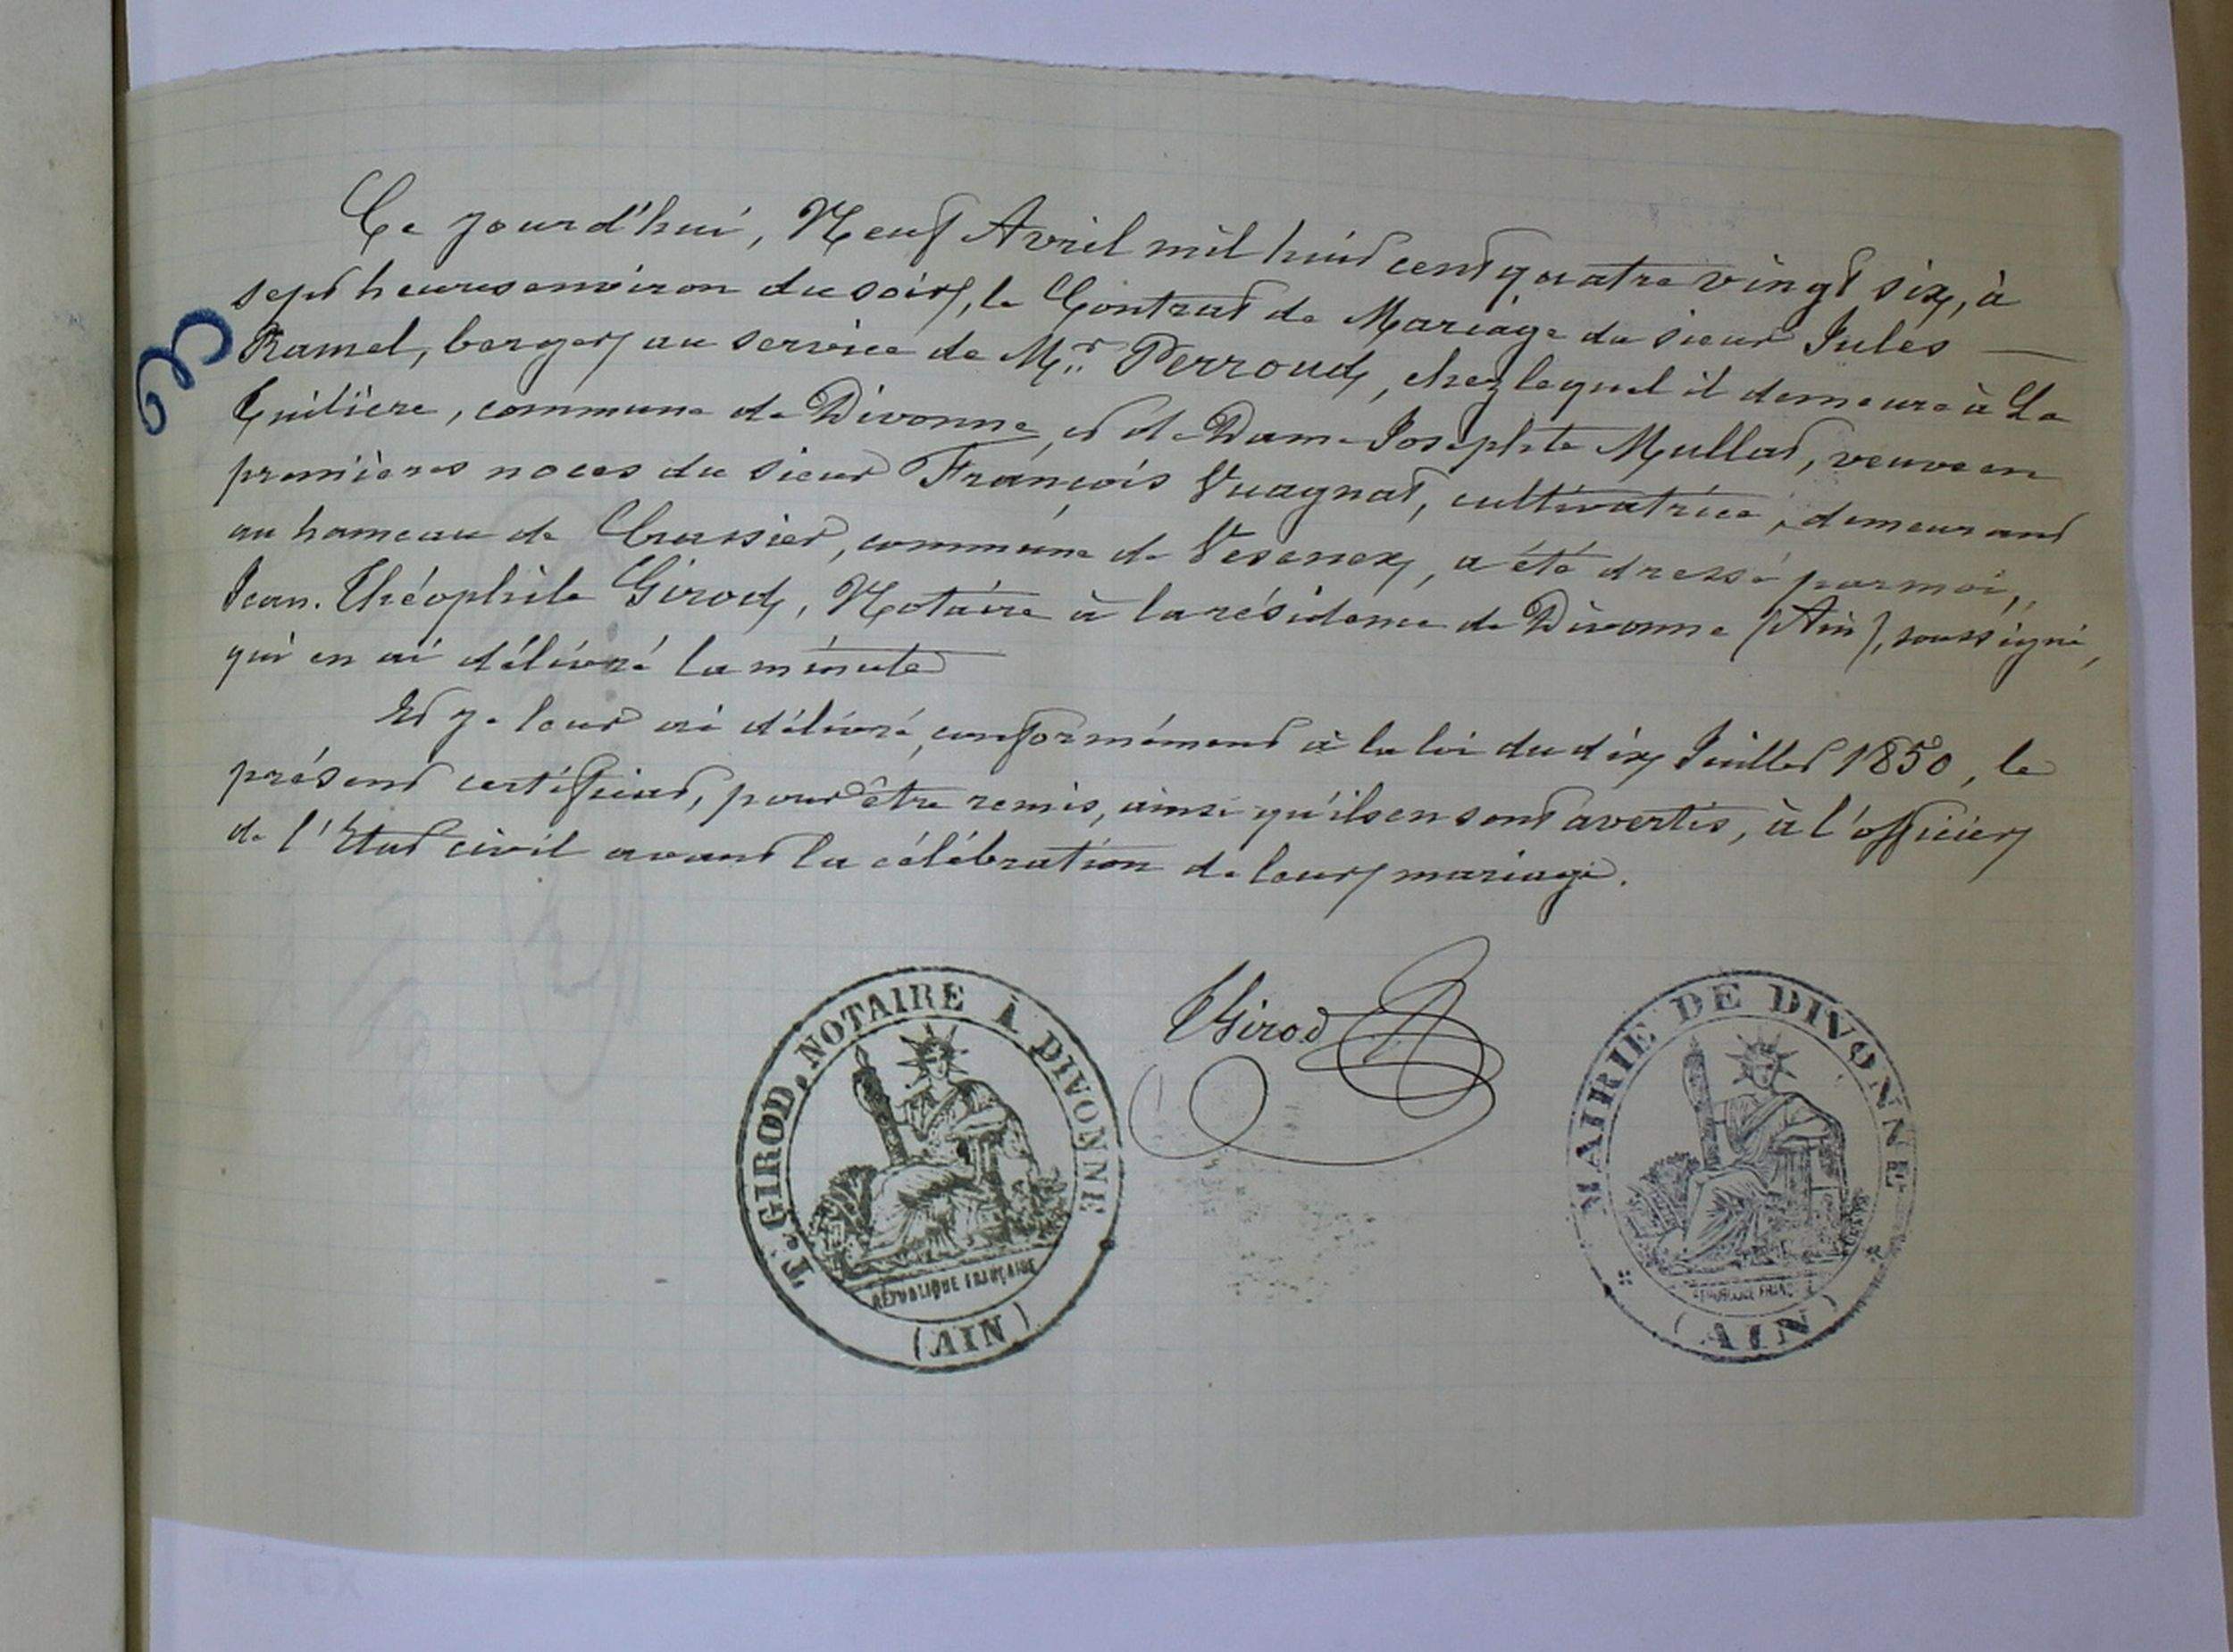 Ce jourd'hui, Neuf Avril mil huit cent quatre vingt six, à
sept heures environ du soir, le Contrat de Mariage du sieur Jules —
Ramel, berger au service de Mr. Perroud, chez lequel il demeure à La
Tuilière, commune de Divonne, et de Dame Josephte Mullat, veuve en
premières noces du sieur François Vuagnat, cultivatrice, demeurant
au hameau de Crassier, commune de Vesenex, a été dressé par moi,
Jean-Théophile Girod, Notaire à la résidence de Divonne (Ain), soussigné,
qui en ai délivré la minute
Et je leur ai délivré, conformément à la loi du dix Juillet 1850, le
présent certificat, pour être remis, ainsi qu'ils en sont avertis, à l'officier
de l'Etat civil avant la célébration de leur mariage.
TGirod
T. GIROD, NOTAIRE À DIVONNE
RÉPUBLIQUE FRANÇAISE
(AIN)
MAIRIE DE DIVONNE
(AIN)